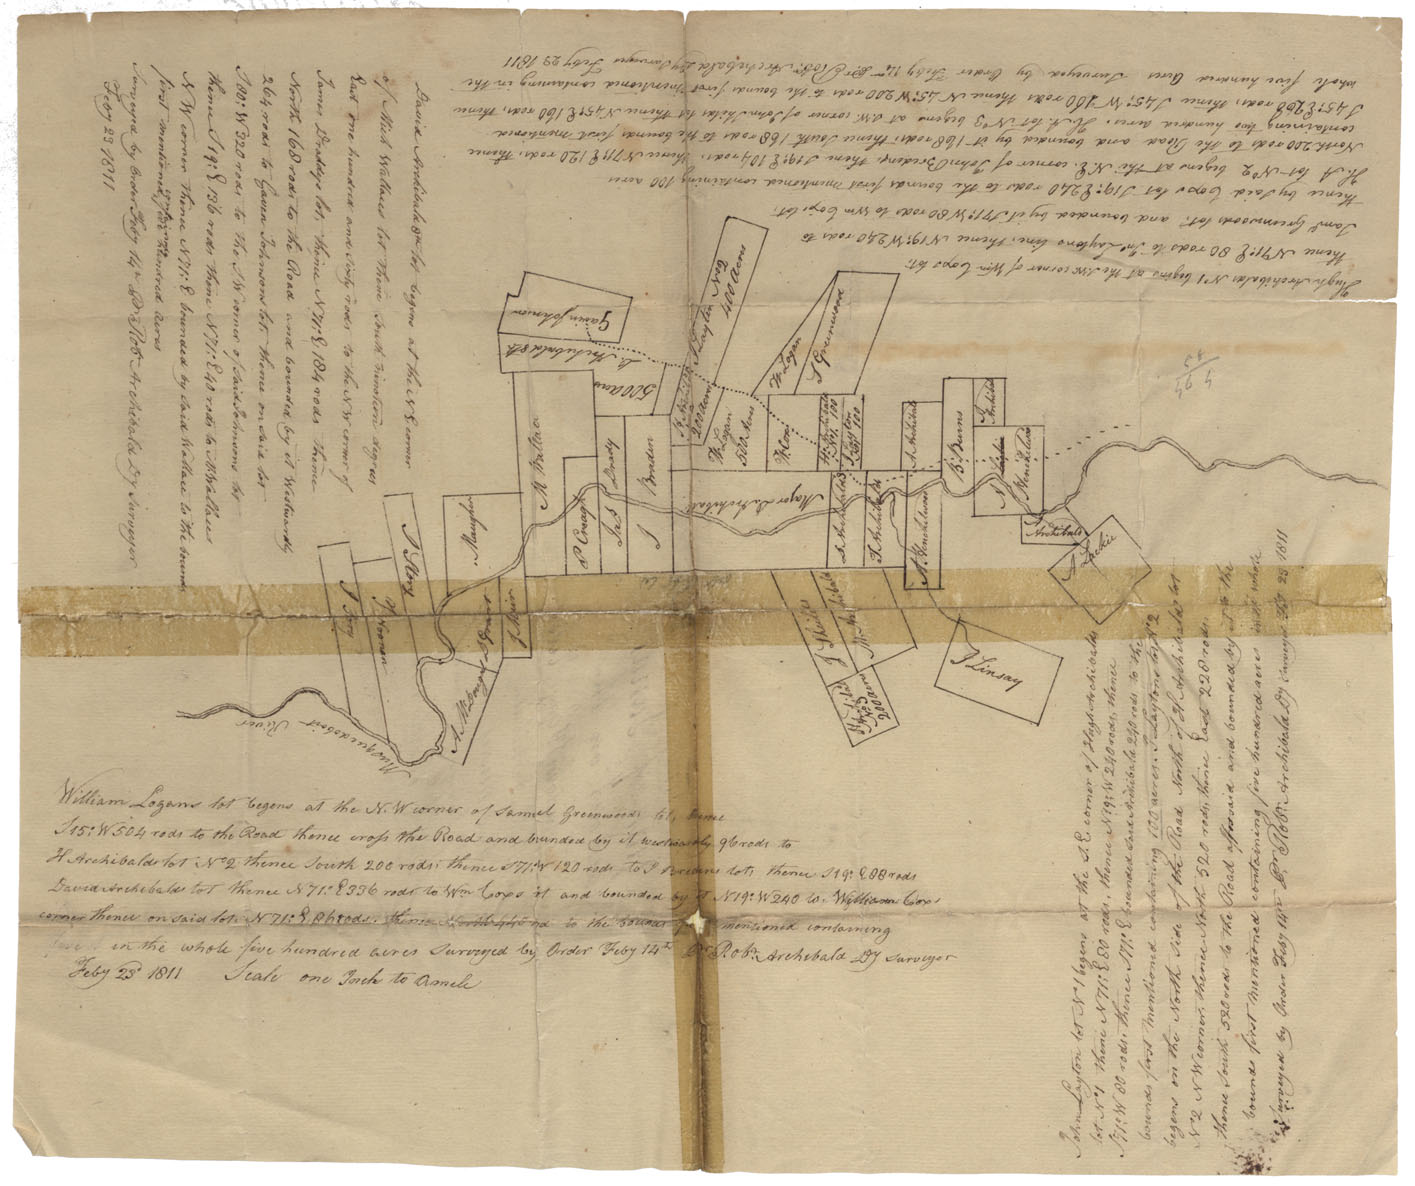 David Archibald 8th lot begins at the N E corner
of Mical Wallaces lot thence South nineteen degres
East one hundred and Sixty rods to the N W corner of
James Bradeys lot, thence N 71° E 184 rods thence
North 168 rods to the Road and bounded by it Westwardly
264 rods to Gaven Johnsons lot thence on said lot
S 89° W 320 rods to the S W corner of Said Johnsons lot
thence S 19° E 136 rods thence N 71° E 40 rods to M Wallaces
N W corner thence N 71° E bounded by said Wallace to the bounds
first mentioned containing five hundred acres
Surveyed by Order Feby 14th Pr Robt Archibald Dy Surveyor
Feby 23 1811
Hugh Archibalds No 1 begins at the S W corner of Wm Coxs lot
thence N 71° E 80 rods to Jno Laytons line thence N 19° W 240 rods to
Saml Greenwoods lot and bounded by it S 71° W 80 rods to Wm Coxs lot
thence by said Coxs lot S 19° E 240 rods to the bounds first mentioned containing 100 acres
H. A lot No 2 begins at the N.E. corner of John Bredens, thence S 19° E 104 rods thence N 71° E 120 rods thence
North 200 rods to the Road and bounded by it 168 rods thence South 168 rods to the bounds first mentioned
containing two hundred acres. H. A lot No 3 begins at S.W corner of John Fields lot thence N 45° E 160 rods thence
S 45° E 200 rods thence S 45° W 200 rods thence N 45° W 200 rods to the bounds first mentioned containing in the
whole five hundred Acres Surveyed by Order Feby 14th Pr Robt Archibald Dy Surveyor Feby 23 1811
Gavin Johnson
D. Archibald 8th
500 acres
J Layten No 2
400 acres
H Archibald
200 acres
W Logan
S Greenwood
W Logan
500 Acres
W Cox
H Archibald
No 1 100
J Layton
No 1 100
A Archibald
B Burns
J Archibald
N Henchelwoo
M Wallace
P Cragg
Jas Brady
J Breden
Major D. Archibald
D Archibald
T Archibald
A Henchelwoo
Archibald
J Fackie
J Linsay
J Fields
M Archibald
H. Arild
No 3
200 acres
J Foxy
W Norman
J Story
Maughn
A McDougal
D Grant
J Muir
Musquodoboit River
William Logans lot begins at the N.W corner of Samuel Greenwoods lot, thence
S 15° W 504 rods to the Road thence cross the Road and bunded by it westwardly 96 rods to
H Archibalds lot No 2 thence South 200 rods thence S 71° W 120 rods to J Bredens lot thence S 19° E 88 rods
David Archibalds lot thence N 71° E 336 rods to Wm Coxs lot and bounded by it N 19° W 240 to William Coxs
corner thence on said lot N 71° E 86 rods thence North 440 to the bounds first mentioned containing
in the whole five hundred acres Surveyed by Order Feby 14th Pr Robt Archibald Dy Surveyor
Feby 23d 1811 Scale one Inch to a mile
John Layton lot No 1 begins at the S.E. corner of Hugh Archibalds
lot No 1 thence N 71° E 80 rods, thence N 19° W 240 rods, thence
S 71° W 80 rods thence S 19° E bounded said Archibald 240 rods to the
bounds first mentioned containing 100 acres. J Laytons lot No 2
begins on the North Side of the Road North of H Archibalds lot
No 2 N W corner, thence North 520 rods, thence East 220 rods
thence South 520 rods to the Road afforsaid and bounded by it to the
bounds first mentioned containing five hundred acres in the whole
Surveyed by Order Feby 14th Pr Robt Archibald Dy Surveyor Feb 23 1811